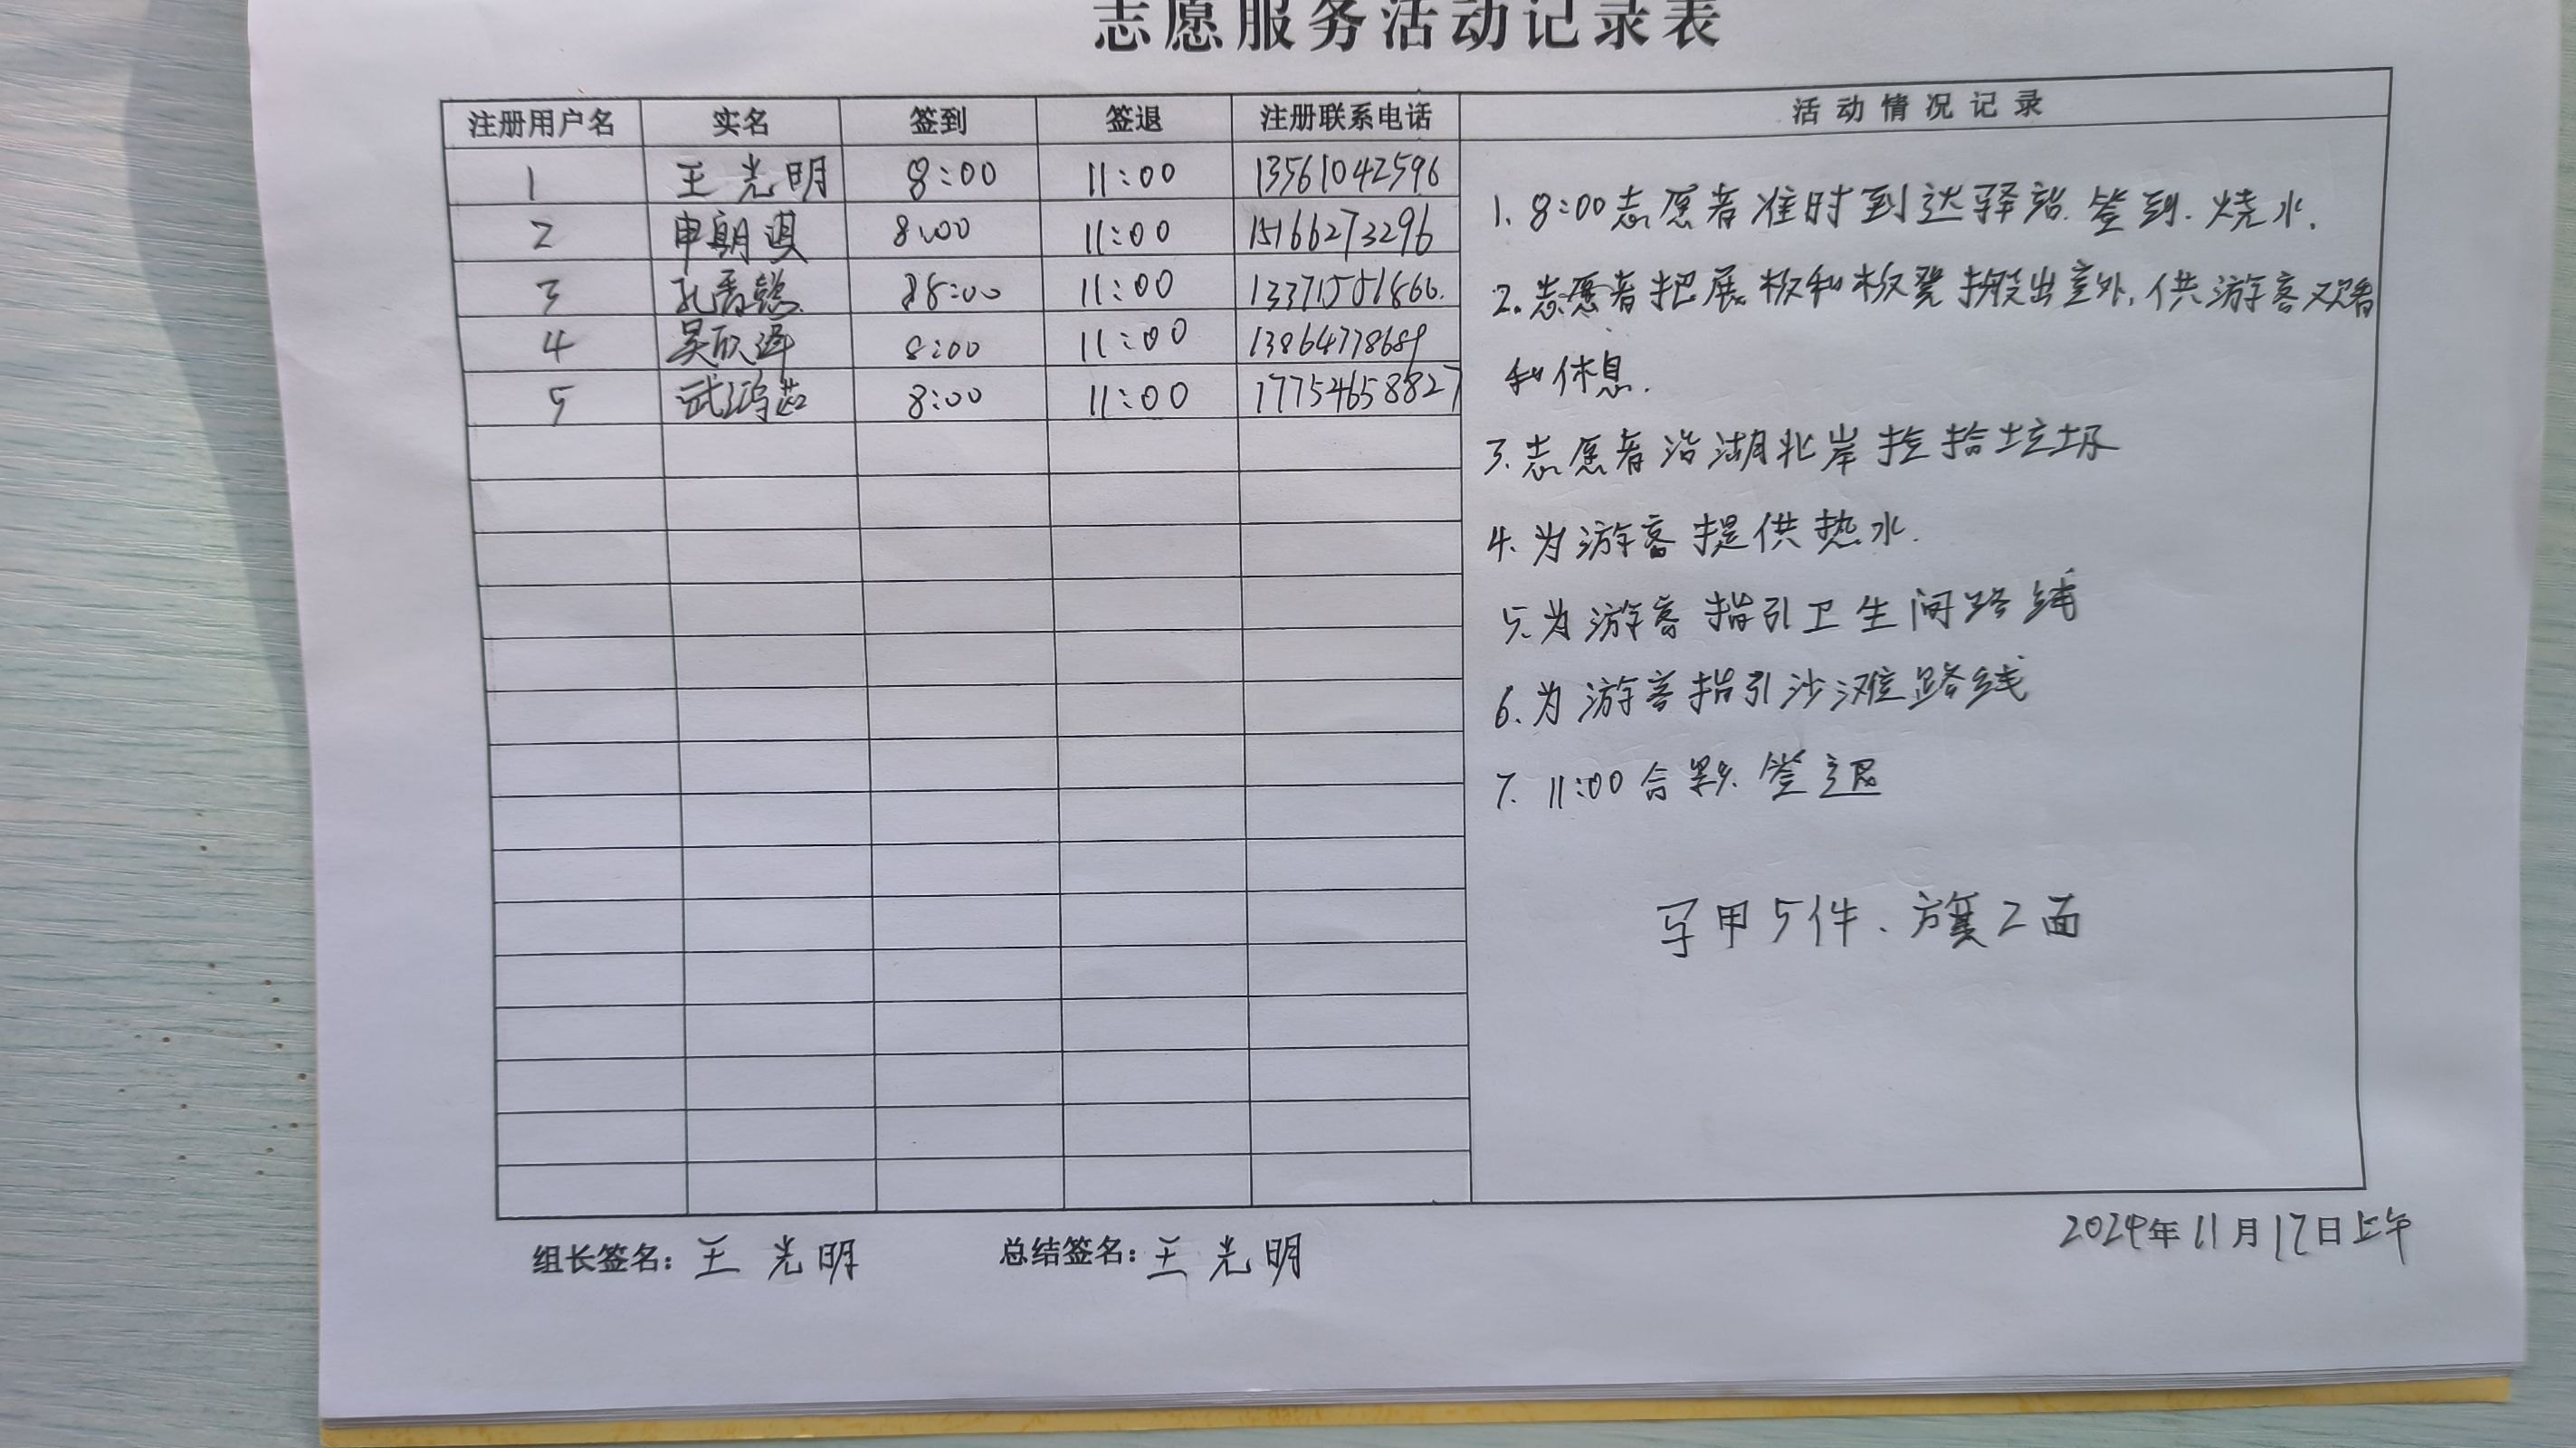 志愿服务活动记录表
注册用户名 实名 签到 签退 注册联系电话 活动情况记录
1 王光明 8:00 11:00 13561042596
2 申朗淇 8:00 11:00 15166273296
3 孔 8:00 11:00
4 吴欣泽 8:00 11:00 13864778689
5 武 8:00 11:00 17754658827
1. 8:00志愿者准时到达驿站.签到.烧水.
2.志愿者把展板和板凳搬出室外,供游客观看
和休息.
3.志愿者沿湖北岸捡拾垃圾
4.为游客提供热水.
5.为游客指引卫生间路线
6.为游客指引沙滩路线
7. 11:00合影.签退
马甲5件、旗2面
组长签名：王光明 总结签名：王光明
2024年11月17日上午